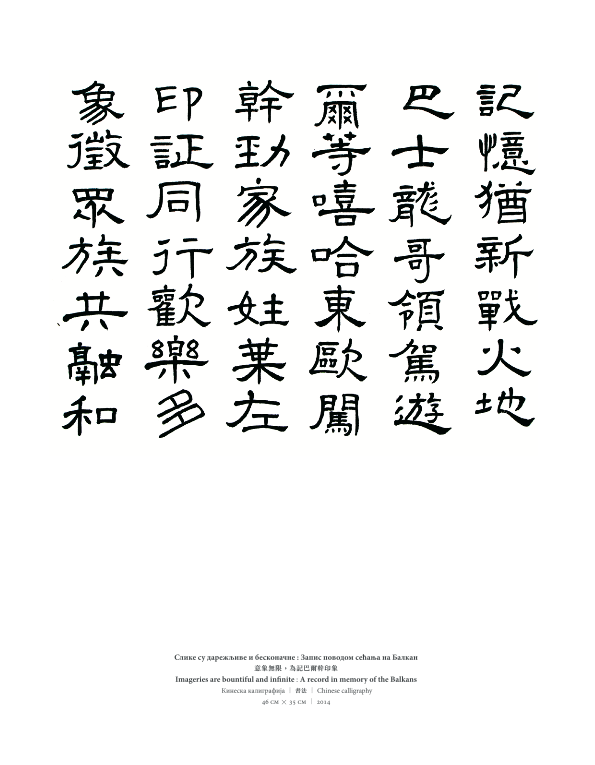 記憶猶新戰火地
巴士龍哥領駕遊
爾等嘻哈東歐闖
幹勁家族姓葉左
印証同行歡樂多
象徵眾族共融和
Слике су дарежљиве и бесконачне : Запис поводом сећања на Балкан
意象無限，為記巴爾幹印象
Imageries are bountiful and infinite : A record in memory of the Balkans
Кинеска калиграфија | 書法 | Chinese calligraphy
46 см × 35 см | 2014